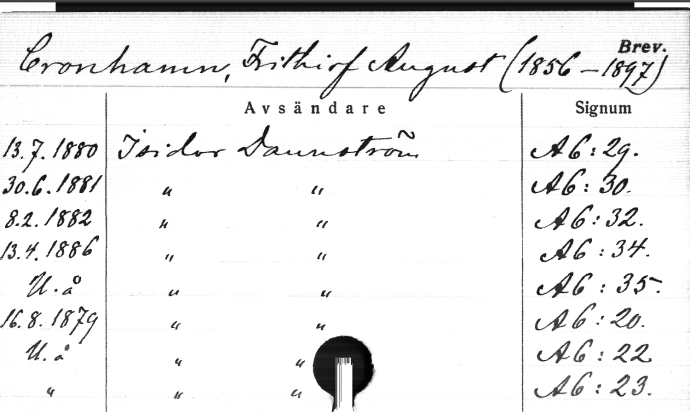 Brev.
Cronhamn, Frithiof August (1856–1897)
Avsändare Signum
13.7.1880 Isidor Dannström A6:29.
30.6.1881 " " A6:30.
8.2.1882 " " A6:32.
13.4.1886 " " A6:34.
U.å " " A6:35.
16.8.1879 " " A6:20.
U.å " " A6:22
" " " A6:23.